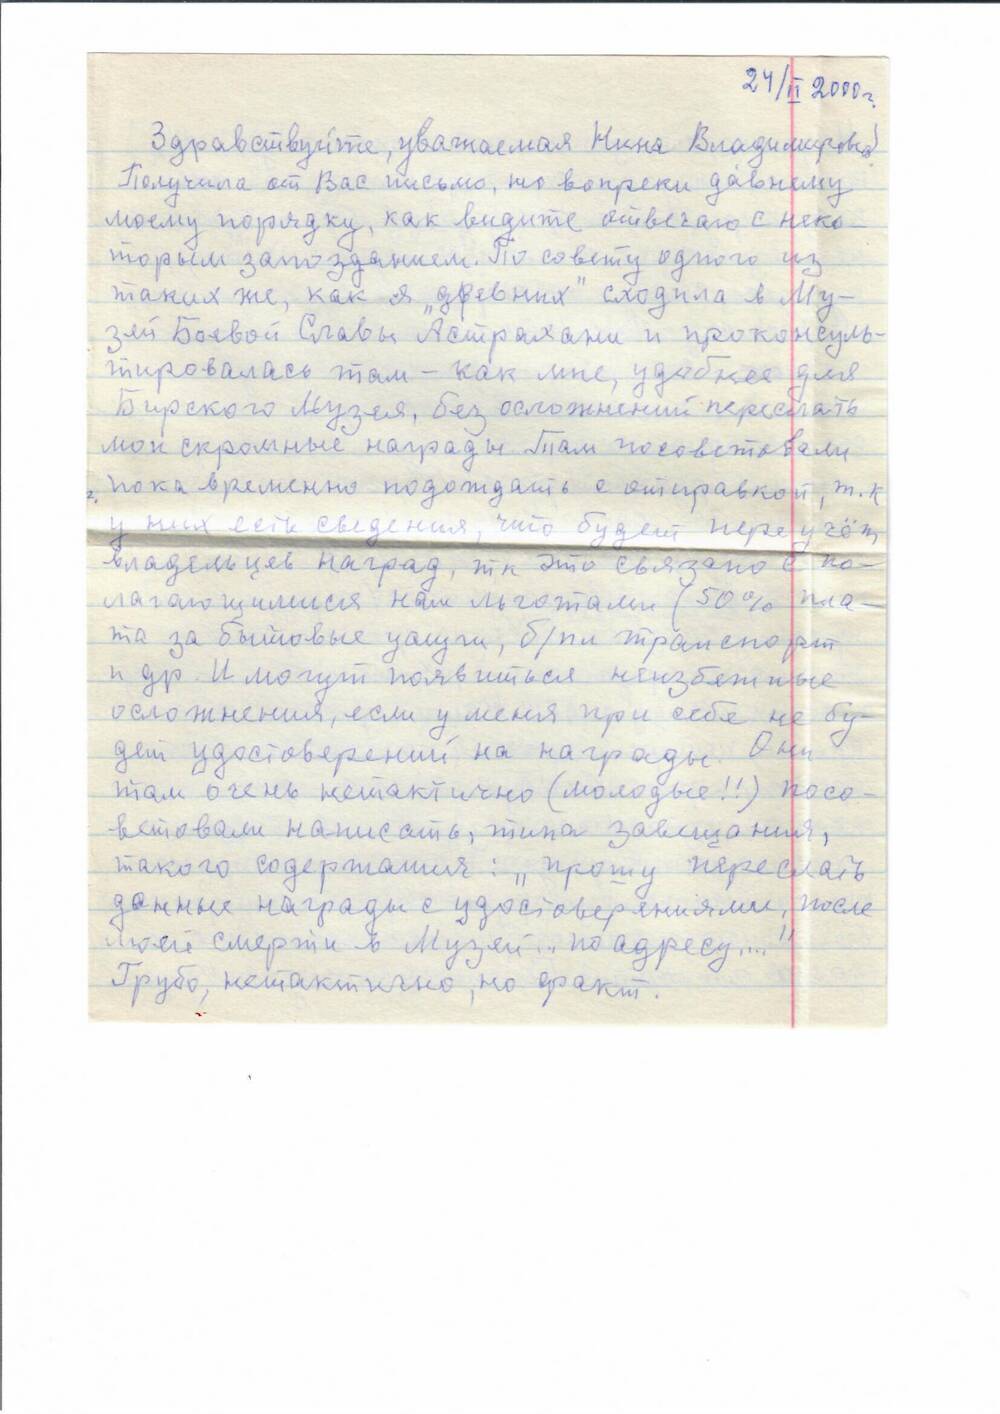 24/II 2000г.
Здравствуйте, уважаемая Нина Владимировна!
Получила от Вас письмо, но вопреки давнему
моему порядку, как видите отвечаю с неко-
торым запозданием. По совету одного из
таких же, как я „древних" сходила в Му-
зей Боевой Славы Астрахани и проконсуль-
тировалась там – как мне, удобнее для
Бирского Музея, без осложнений переслать
мои скромные награды. Там посоветовали
пока временно подождать с отправкой, т.к
у них есть сведения, что будет переучёт
владельцев наград, тк это связано с по-
лагающимися нам льготами (50% пла-
та за бытовые услуги, б/пл транспорт
и др. И могут появиться неизбежные
осложнения, если у меня при себе не бу-
дет удостоверений на награды. Они
там очень нетактично (молодые!!) посо-
ветовали написать, типа завещания,
такого содержания: „прошу переслать
данные награды с удостоверениями, после
моей смерти в Музей... по адресу...."
Грубо, нетактично, но факт.